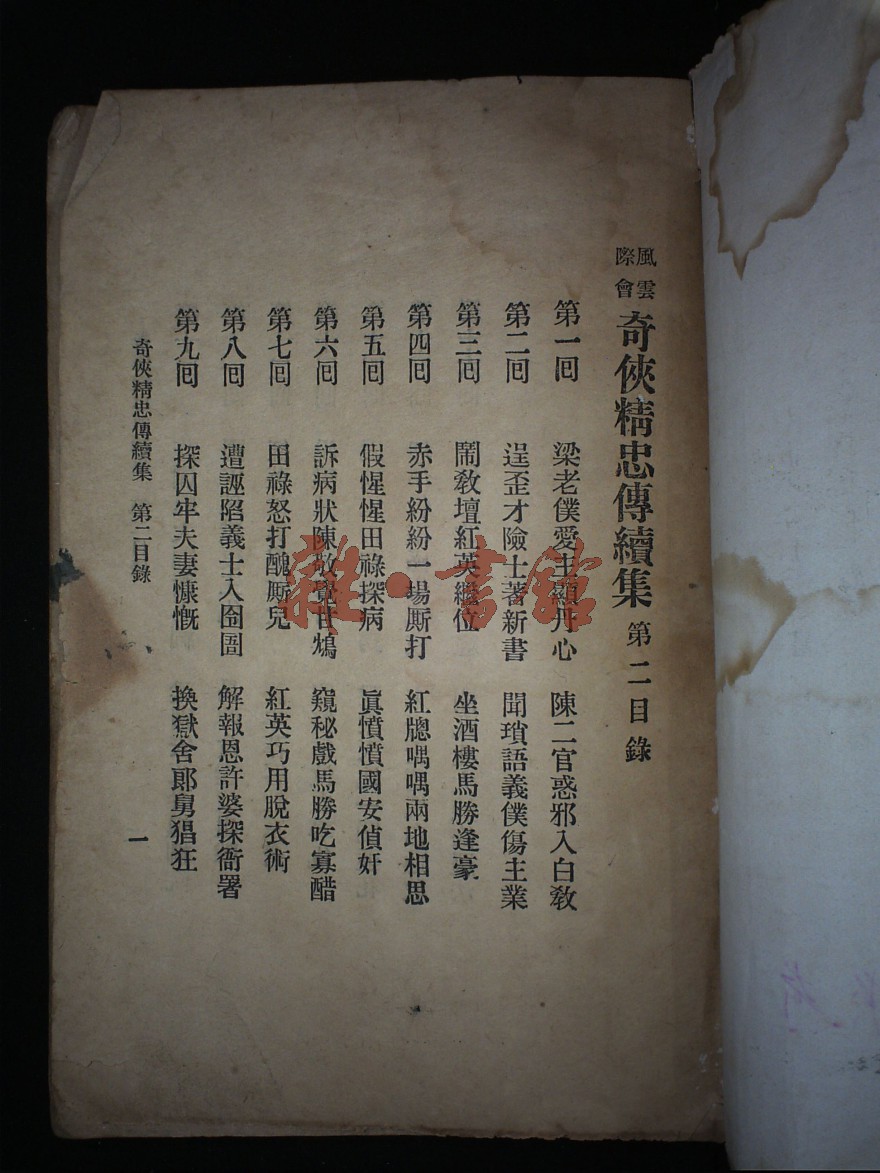 風雲
際會
奇俠精忠傳續集 第二目錄
第一回 梁老僕愛主顯丹心 陳二官惑邪入白教
第二回 逞歪才險士著新書 聞瑣語義僕傷主業
第三回 鬧教壇紅英繼位 坐酒樓馬勝逢豪
第四回 赤手紛紛一場厮打 紅牕喁喁兩地相思
第五回 假惺惺田祿探病 眞憤憤國安偵奸
第六回 訴病狀陳敬覺甘鴆 窺秘戲馬勝吃寡醋
第七回 田祿怒打醜厮兒 紅英巧用脫衣術
第八回 遭誣陷義士入囹圄 解報恩許婆探衙署
第九回 探囚牢夫妻慷慨 換獄舍郞舅猖狂
奇俠精忠傳續集 第二目錄
一
雜·書館